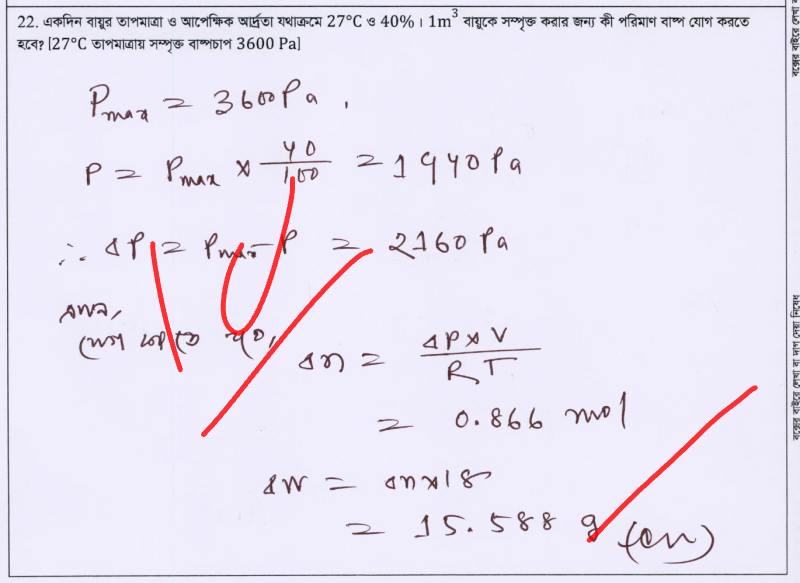 22. একদিন বায়ুর তাপমাত্রা ও আপেক্ষিক আর্দ্রতা যথাক্রমে 27°C ও 40%। 1m³ বায়ুকে সম্পৃক্ত করার জন্য কী পরিমাণ বাষ্প যোগ করতে
হবে? [27°C তাপমাত্রায় সম্পৃক্ত বাষ্পচাপ 3600 Pa]
P_max = 3600 Pa.
P = P_max × 40/100 = 1440 Pa
∴ ΔP = P_max - P = 2160 Pa
এখন,
যোগ করতে হবে,
Δn = ΔP×V/RT
= 0.866 mol
ΔW = Δn×18
= 15.588 g (Ans)
বক্সের বাইরে লেখা বা দাগ দেয়া নিষেধ